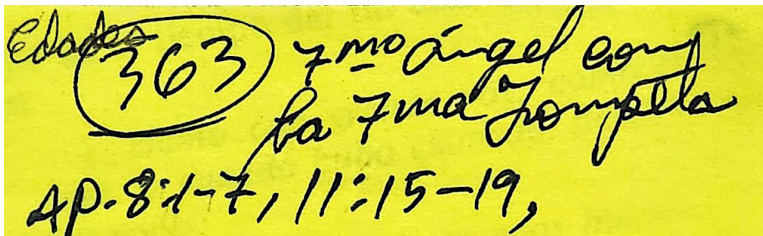 Edades
363 7mo ángel con
la 7ma Trompeta
Ap. 8:1-7, 11:15-19,